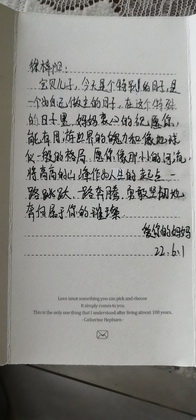 宝贝儿子，今天是个特别的日子，是
一个由自己做主的日子，在这个特别
的日子里，妈妈衷心的祝愿你，
能有周游世界的能力和像地球
仪一般的格局。愿你像那小小的河流，
将高高的山峰作为人生的起点，一
路跳跃，一路奔腾，勇敢坚韧地
奔向属于你的璀璨
爱你的妈妈
22.6.1
Love must something you can pick and choose
It simply comes to you,
This is the only one thing that i understood after living almost 100 years.
- Catherine Hepburn -